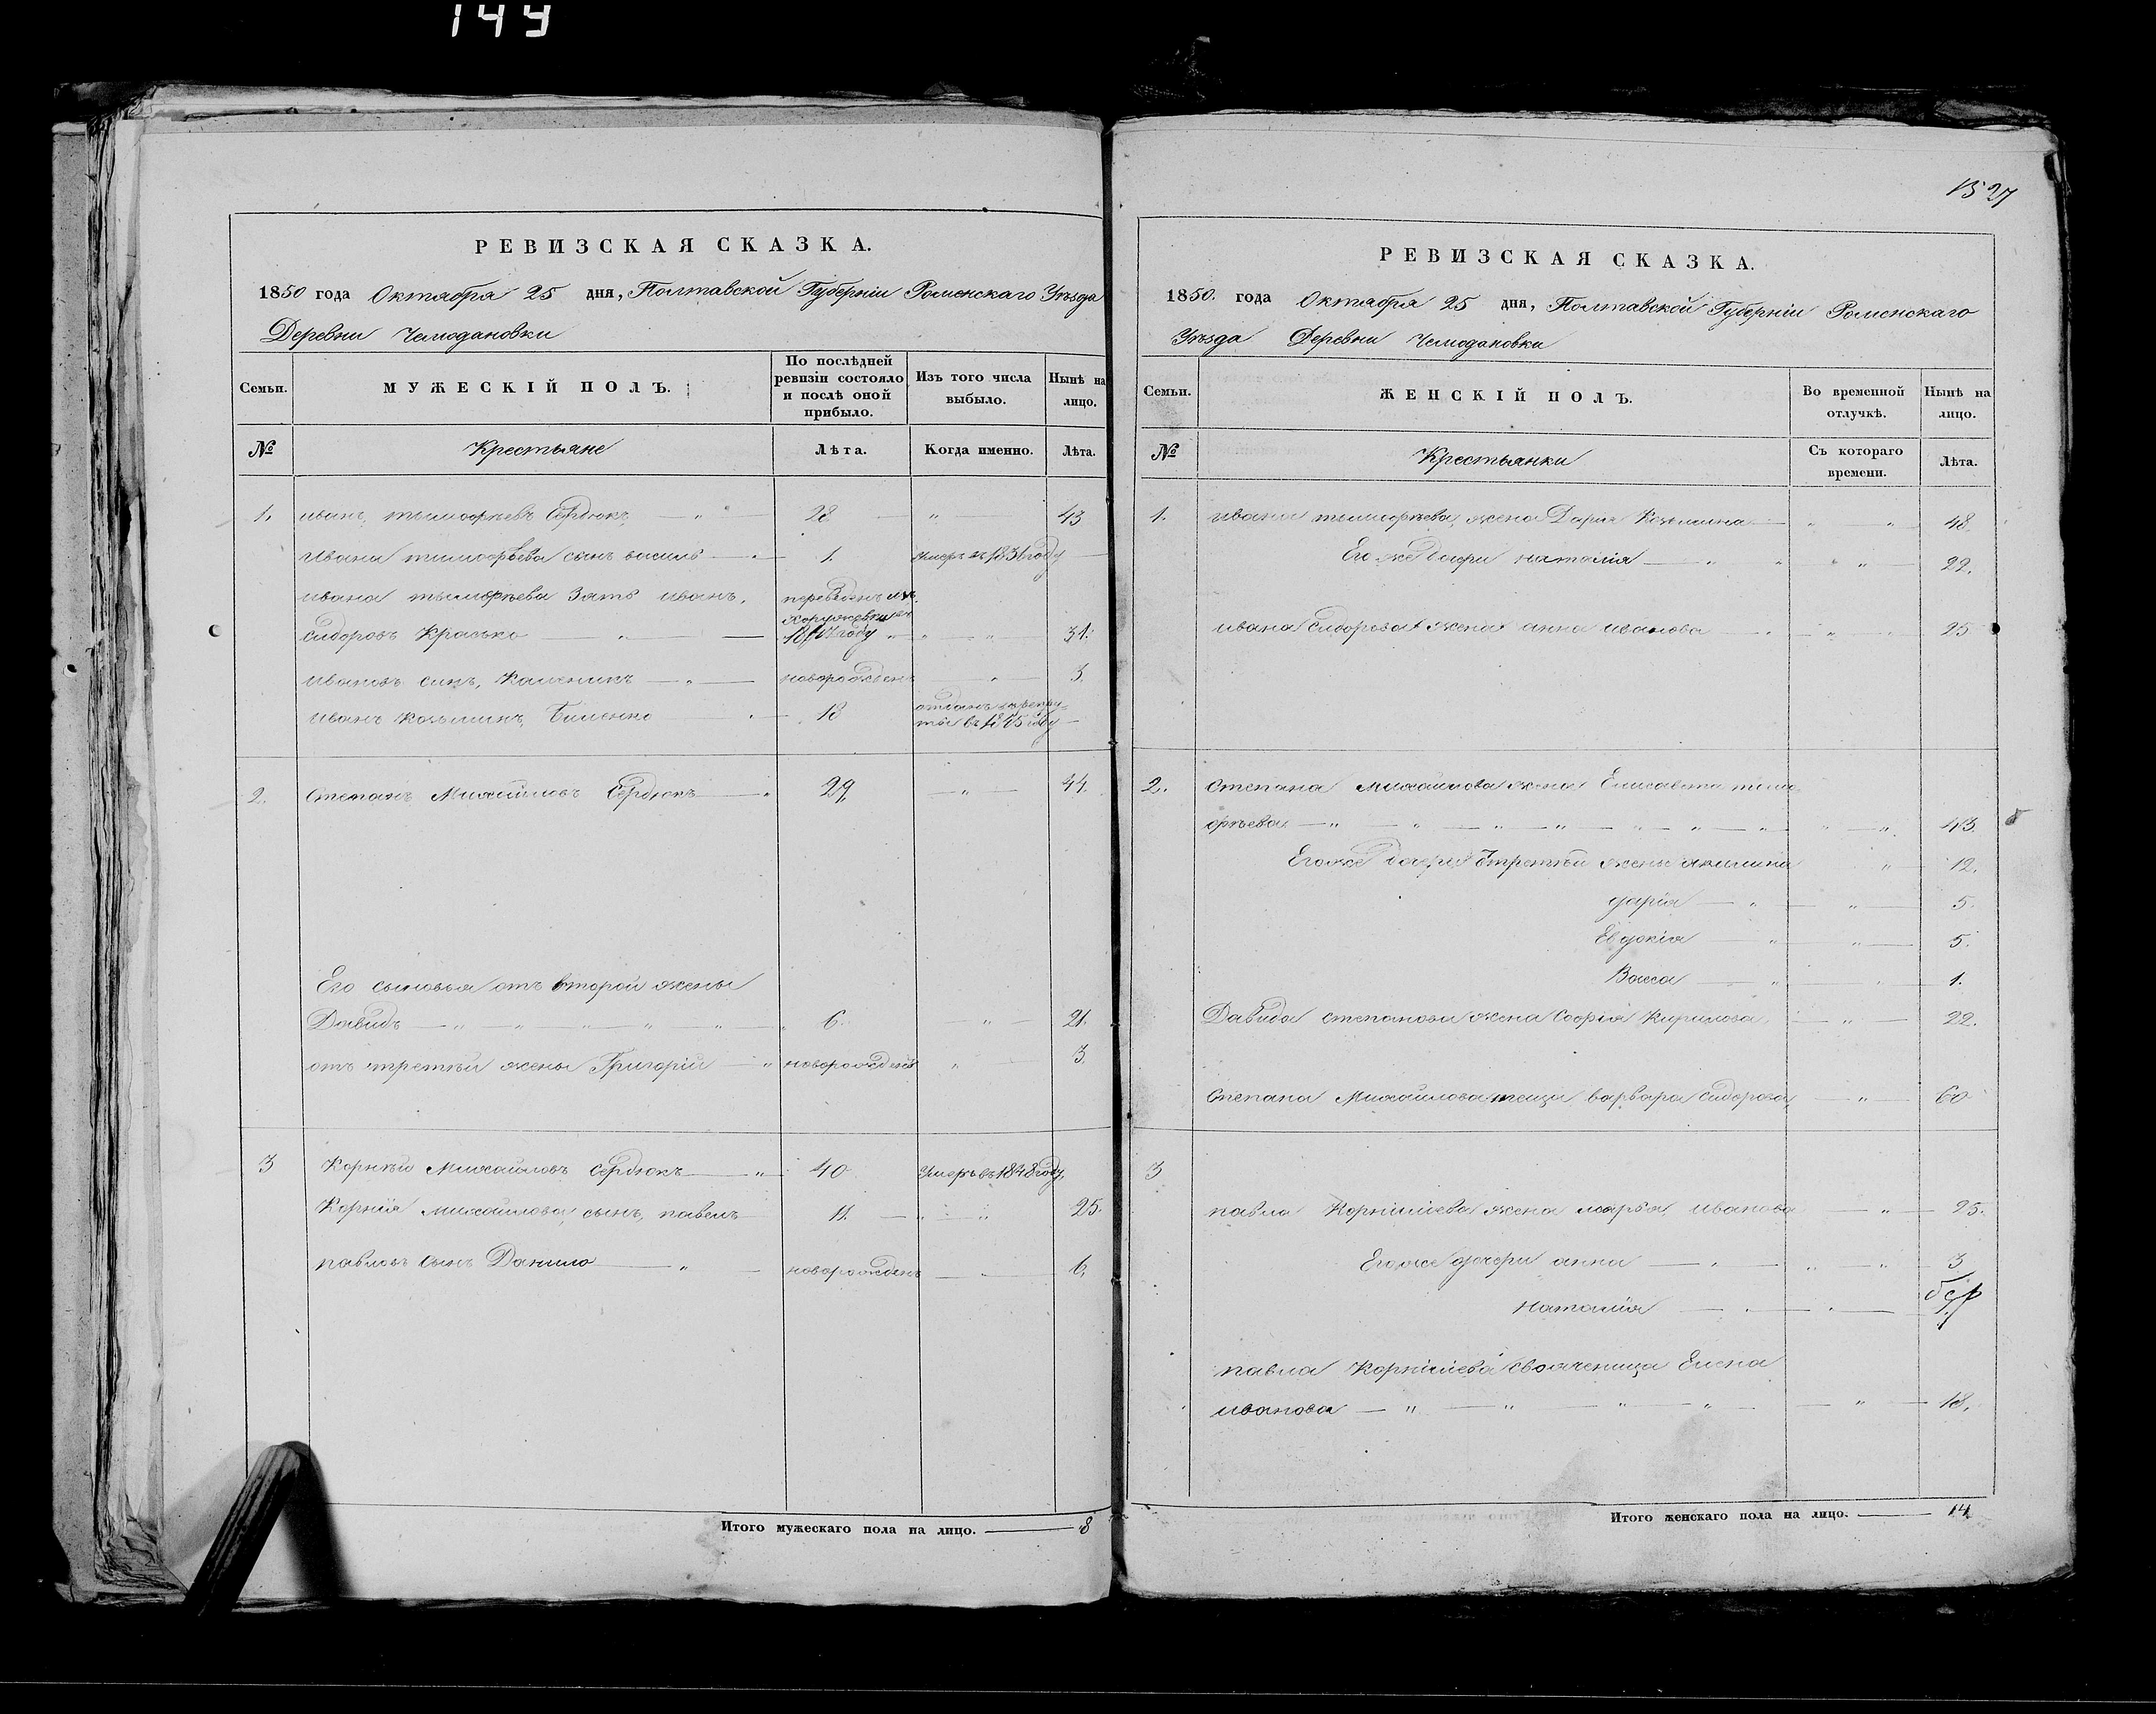 149
РЕВИЗСКАЯ СКАЗКА.
1850 года Октября 25 дня, Полтавской Губерніи Роменскаго Уѣзда
Деревни Чемодановки
Семьи. МУЖЕСКІЙ ПОЛЪ. По послѣдней ревизіи состояло и послѣ оной прибыло. Изъ того числа выбыло. Нынѣ на лицо.
№ Крестьяне Лѣта. Когда именно. Лѣта.
1. иванъ тымофѣевъ Сердюкъ — " — 28 — " — 43
Ивана тимофѣева сынъ василь — 1. умеръ въ 1831 году —
ивана тымофѣева зять иванъ, переведенъ изъ
Хоружевки въ
сидоровъ Красько " — 1847 году " " " 31.
ивановъ синъ, Каленикъ — " — новорожденъ " 3.
иванъ козьминъ, — 18 отданъ в рекру-
ты въ 1845 году —
2. Степанъ Михайловъ Сердюкъ — " 29, — " — 44.
Его сыновья отъ второй жены
Давидъ — " — " — " — " — " — 6. " — 21.
отъ третьей жены Григорій — " новорожденъ " — 3.
3 Корнѣй Михайловъ Сердюкъ — " — 40 умеръ въ 1848 году,
Корнія михайлова, сынъ, павелъ 11. — " — " 25.
павловъ сынъ Данило — " — новорожденъ — 6,
Итого мужескаго пола на лицо. — 8
1527
РЕВИЗСКАЯ СКАЗКА.
1850. года Октября 25 дня, Полтавской Губерніи Роменскаго
Уѣзда Деревни Чемодановки
Семьи. ЖЕНСКІЙ ПОЛЪ. Во временной отлучкѣ. Нынѣ на лицо.
№ Крестьянки Съ котораго времени. Лѣта.
1. ивана тымофѣева, жена Дария Козьмина — " " 48.
Его же дочери наталія — " " " " — 22.
ивана сидорова жена анна иванова — " " 25
2. Степана михайлова жена Елисавета тимо-
фѣева. — " — " — " — " — " — " — " " — ". 43.
Егоже дочери отъ третьей жены акилина " 12.
дарія — " — " — 5.
Евдокія — " " — 5.
Васса — " " — 1.
Давида степанова жена Софія Кирилова — " — 22.
Степана Михайлова теща варвара сидорова, — " — 60
3
павла Корніиева жена марья иванова — " — 25.
Егоже дочери анна — " — " — " 3
наталія — " — " —
павла Корніиева свояченица Елена
иванова — " — " — " — " — " — 18.
Итого женскаго пола на лицо. — 14